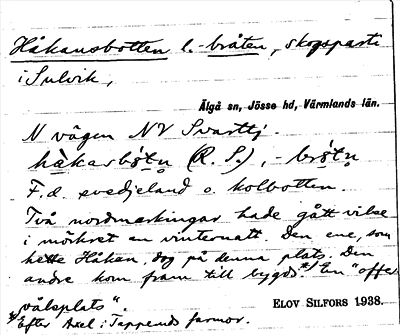 Håkansbotten l. -bråten, skogsparti
i Sulvik,
Älgå sn, Jösse hd, Värmlands län.
N vägen NV Svarttj.
hàkasbo̤tn (R. S.), -bro̤tn
F.d. svedjeland o. kolbotten.
Två nordmarkingar hade gått vilse
i mörkret en vinternatt. Den ene, som
hette Håkan, dog på denna plats. Den
andre kom fram till bygds.*) En "offer-
välsplats".
*) Efter Axel i Tappends farmor.
ELOV SILFORS 1938.